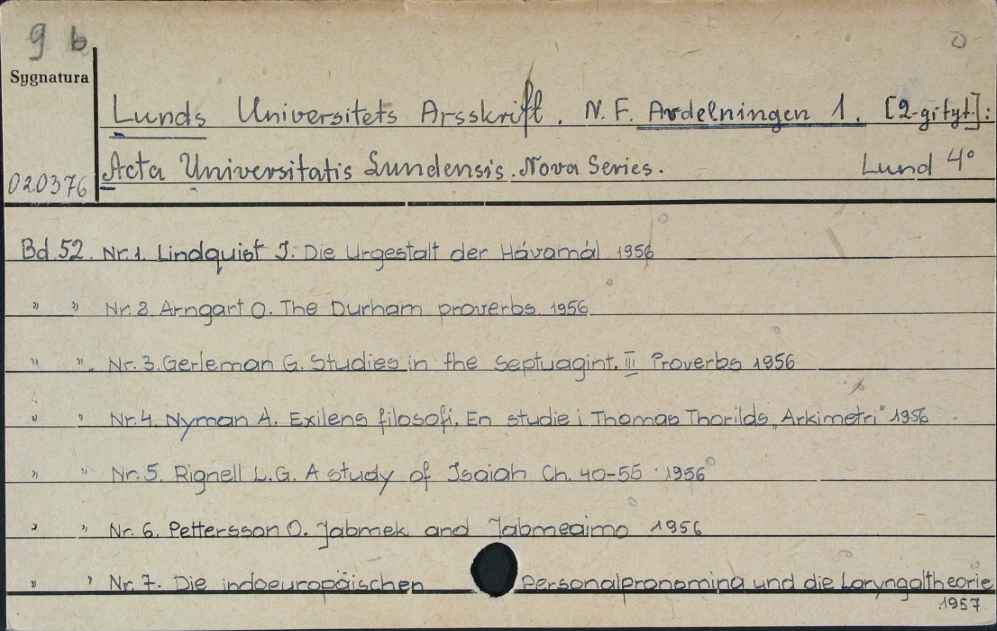 9 b
Sygnatura
020376
Lunds Universitets Arsskrift. N.F. Avdelningen 1. [2-gi tyt]:
Acta Universitatis Lundensis. Nova Series. Lund 4°
Bd. 52. Nr. 1. Lindquist I: Die Urgestalt der Hávamál 1956
" " Nr. 2. Arngart O. The Durham proverbs 1956
" ". Nr. 3. Gerleman G. Studies in the Septuagint. III Proverbs 1956
" " Nr. 4. Nyman A. Exilens filosofi. En studie i Thomas Thorilds „Arkimetri" 1956
" " Nr. 5. Rignell L.G. A study of Isaiah Ch. 40-55. 1956
" " Nr. 6. Pettersson O. Jabmek and Jabmeaimo 1956
" " Nr. 7. Die indoeuropäischen Personalpronomina und die Laryngaltheorie
1957